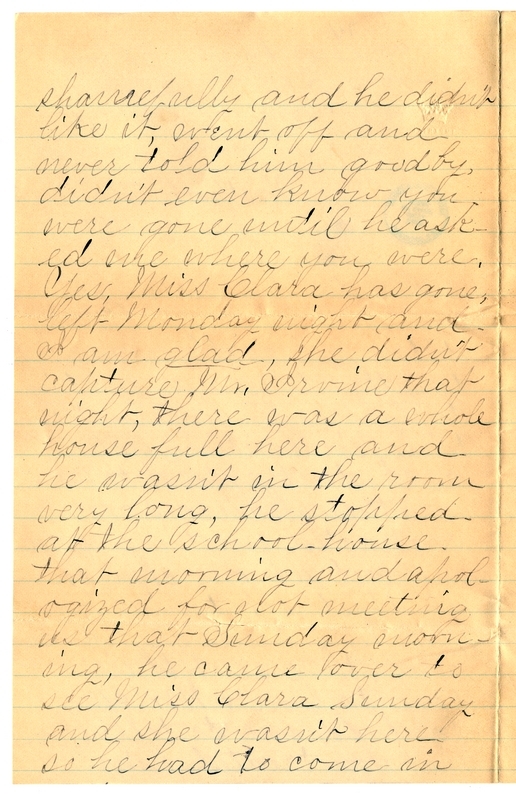 shamefully and he didn't
like it, went off and
never told him goodby,
didn't even know you
were gone until he ask-
ed me where you were.
Yes, Miss Clara has gone,
left Monday night and
I am glad, she didn't
capture Mr. Irvine that
night, there was a whole
house full here and
he wasn't in the room
very long, he stopped
at the school-house
that morning and apol-
ogized for not meeting
us that Sunday morn-
ing, he came over to
see Miss Clara Sunday
and she wasn't here
so he had to come in